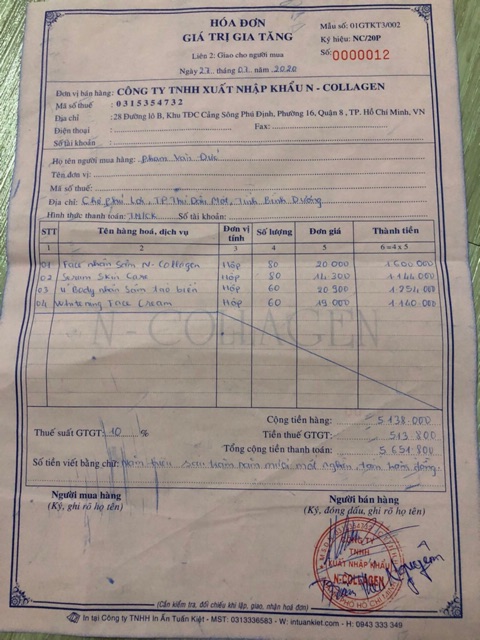 HÓA ĐƠN
GIÁ TRỊ GIA TĂNG
Liên 2: Giao cho người mua
Ngày 27. tháng 07. năm 2020
Mẫu số: 01GTKT3/002
Ký hiệu: NC/20P
Số: 0000012
Đơn vị bán hàng: CÔNG TY TNHH XUẤT NHẬP KHẨU N - COLLAGEN
Mã số thuế : 0315354732
Địa chỉ : 28 Đường lô B, Khu TĐC Cảng Sông Phú Định, Phường 16, Quận 8, TP. Hồ Chí Minh, VN
Điện thoại : Fax:
Số tài khoản :
Họ tên người mua hàng: Phạm Văn Đức
Tên đơn vị:
Mã số thuế:
Địa chỉ: Chợ Phú Lợi, TP Thủ Dầu Một, Tỉnh Bình Dương
Hình thức thanh toán: TM/CK Số tài khoản:
STT Tên hàng hoá, dịch vụ Đơn vị tính Số lượng Đơn giá Thành tiền
1 2 3 4 5 6 = 4 x 5
01 Face nhân sâm N-Collagen Hộp 80 20 000 1 600 000
02 Serum Skin Care Hộp 80 14 300 1 144 000
03 Ủ Body nhân sâm tảo biển Hộp 60 20 900 1 254 000
04 Whitening Face Cream Hộp 60 19 000 1 140 000
N - COLLAGEN
Cộng tiền hàng: 5 138 000
Thuế suất GTGT: 10 % Tiền thuế GTGT: 513 800
Tổng cộng tiền thanh toán: 5 651 800
Số tiền viết bằng chữ: Năm triệu sáu trăm năm mươi mốt nghìn tám trăm đồng.
Người mua hàng
(Ký, ghi rõ họ tên)
Người bán hàng
(Ký, đóng dấu, ghi rõ họ tên)
CÔNG TY
TNHH
XUẤT NHẬP KHẨU
N-COLLAGEN
Nguyên
(Cần kiểm tra, đối chiếu khi lập, giao, nhận hoá đơn)
In tại Công ty TNHH In Ấn Tuấn Kiệt - MST: 0313336583 - W: intuankiet.com - H: 0943 333 349